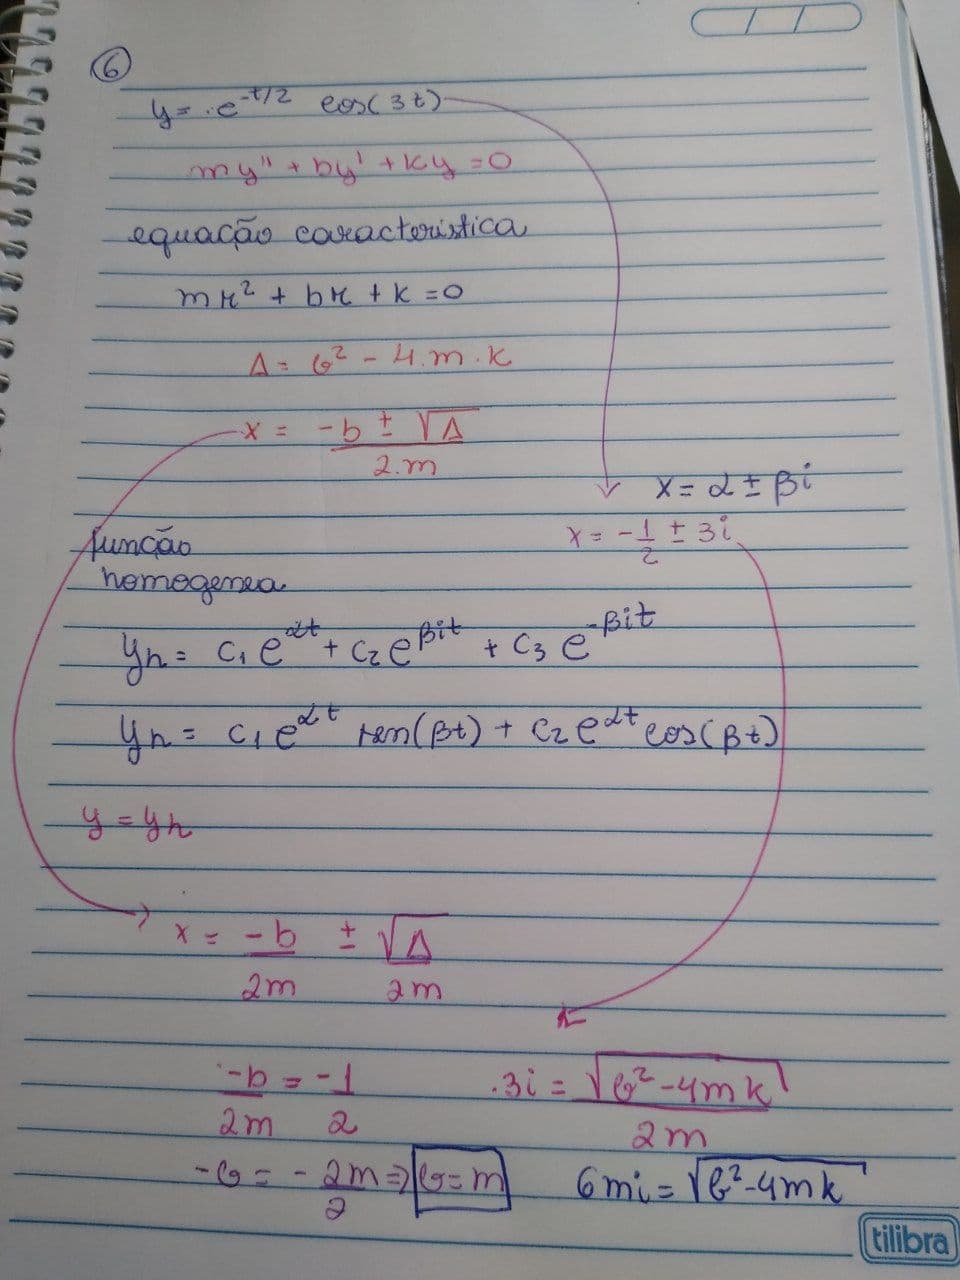 6
y = .e^{-t/2} cos(3t)
my'' + by' + ky = 0
equação característica
mr² + br + k = 0
Δ = b² - 4.m.k
x = (-b ± √Δ)/2.m
x = α ± βi
x = -1/2 ± 3i
função
homogenea
yh = c₁e^{αt} + c₂e^{βit} + c₃e^{-βit}
yh = c₁e^{αt} sen(βt) + c₂e^{αt} cos(βt)
y = yh
x = -b/2m ± √Δ/2m
-b/2m = -1/2 .3i = √(b²-4mk)/2m
-b = -2m/2 ⇒ b = m 6mi = √(b²-4mk)
tilibra